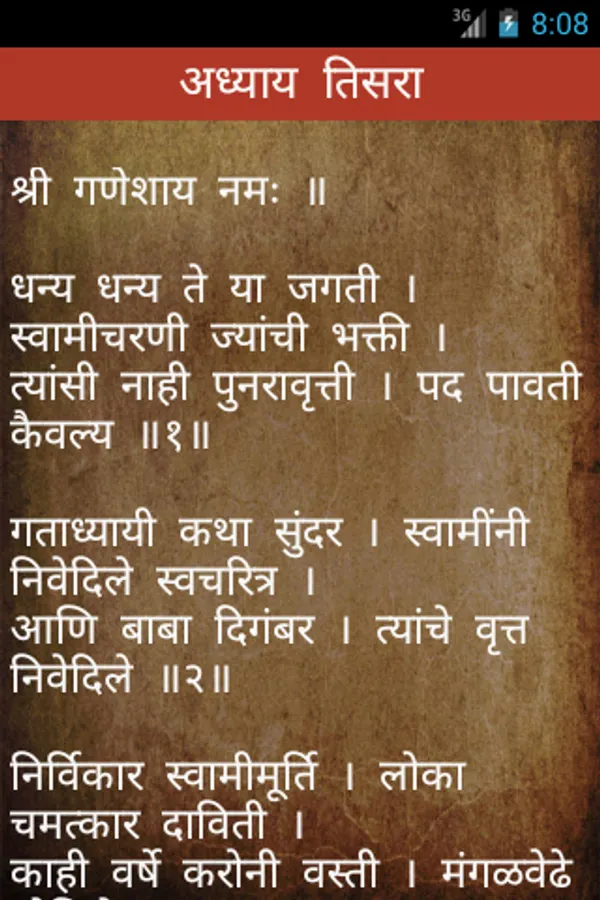 3G 8:08
अध्याय तिसरा
श्री गणेशाय नमः ॥
धन्य धन्य ते या जगती ।
स्वामीचरणी ज्यांची भक्ती ।
त्यांसी नाही पुनरावृत्ती । पद पावती
कैवल्य ॥१॥
गताध्यायी कथा सुंदर । स्वामींनी
निवेदिले स्वचरित्र ।
आणि बाबा दिगंबर । त्यांचे वृत्त
निवेदिले ॥२॥
निर्विकार स्वामीमूर्ति । लोका
चमत्कार दाविती ।
काही वर्षे करोनी वस्ती । मंगळवेढे